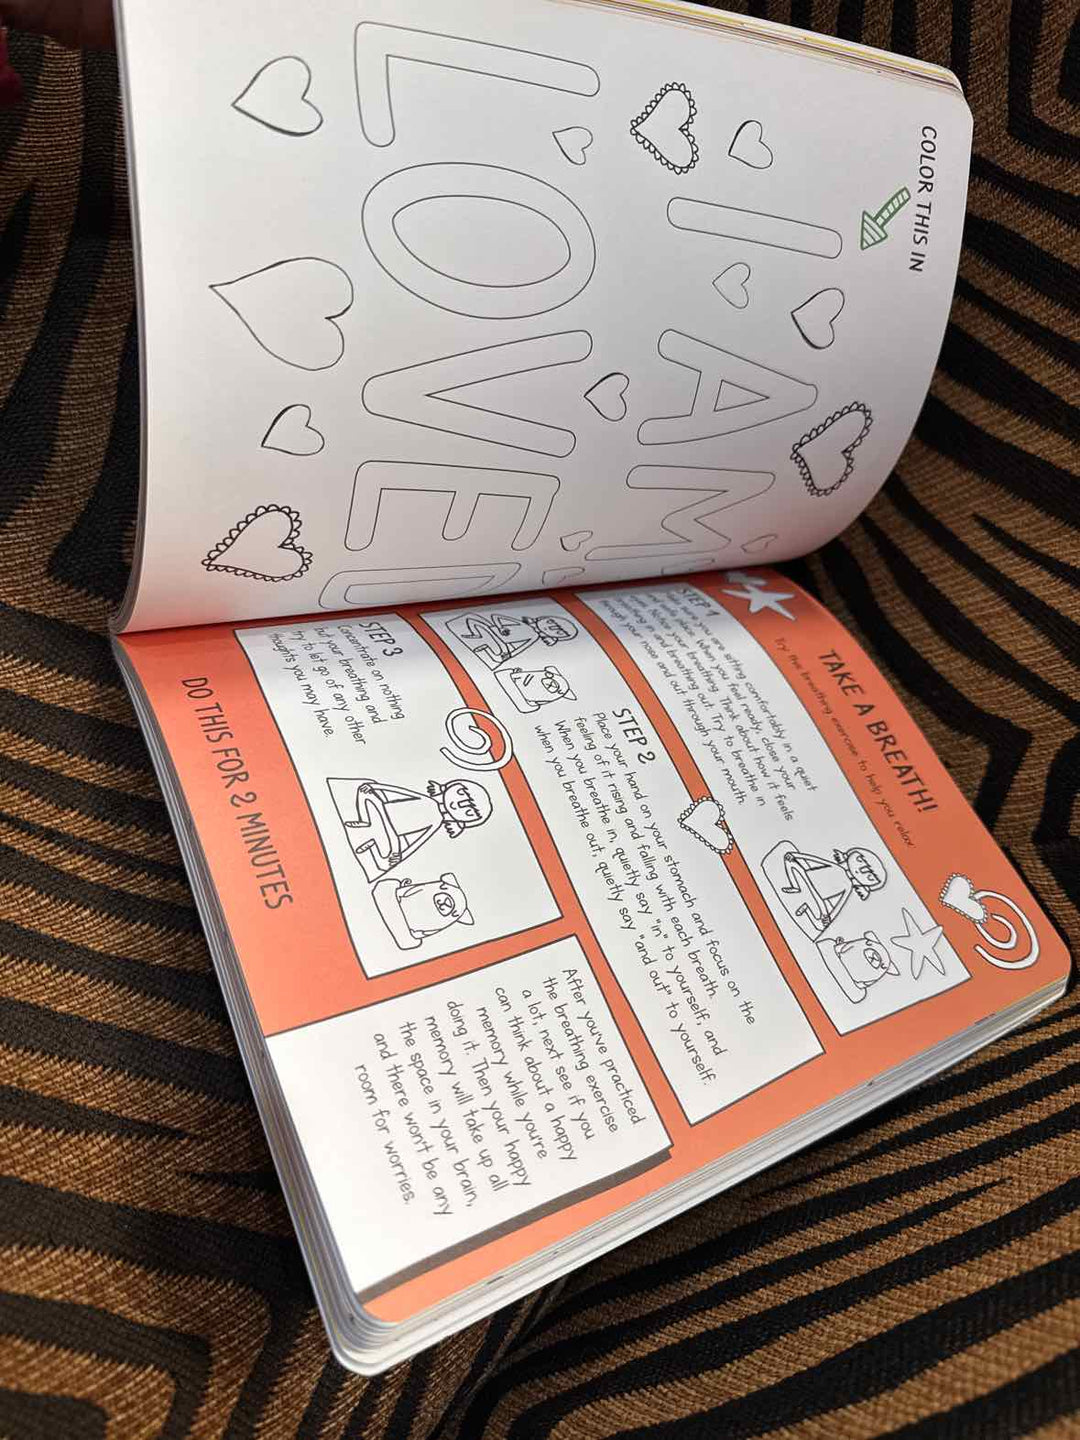 COLOR THIS IN
I AM
LOVED
TAKE A BREATH!
Try the breathing exercise to help you relax.
STEP 1
you are sitting comfortably in a quiet
and safe place. When you feel ready, close your
eyes. Notice your breathing. Think about how it feels
breathing in and breathing out. Try to breathe in
through your nose and out through your mouth.
STEP 2
Place your hand on your stomach and focus on the
feeling of it rising and falling with each breath.
When you breathe in, quietly say "in" to yourself, and
when you breathe out, quietly say "and out" to yourself.
STEP 3
Concentrate on nothing
but your breathing and
try to let go of any other
thoughts you may have.
After you've practiced
the breathing exercise
a lot, next see if you
can think about a happy
memory while you're
doing it. Then your happy
memory will take up all
the space in your brain,
and there won't be any
room for worries.
DO THIS FOR 2 MINUTES